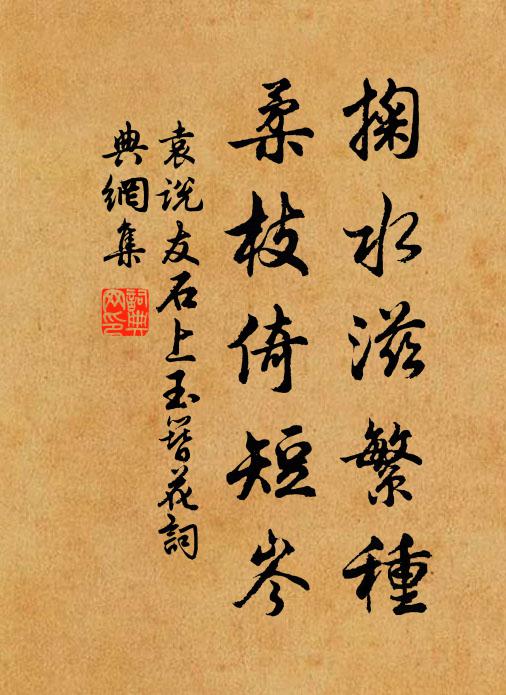 掬水滋繁種
柔枝倚短岑
袁說友石上玉簪花詞
典網集
詞典網印